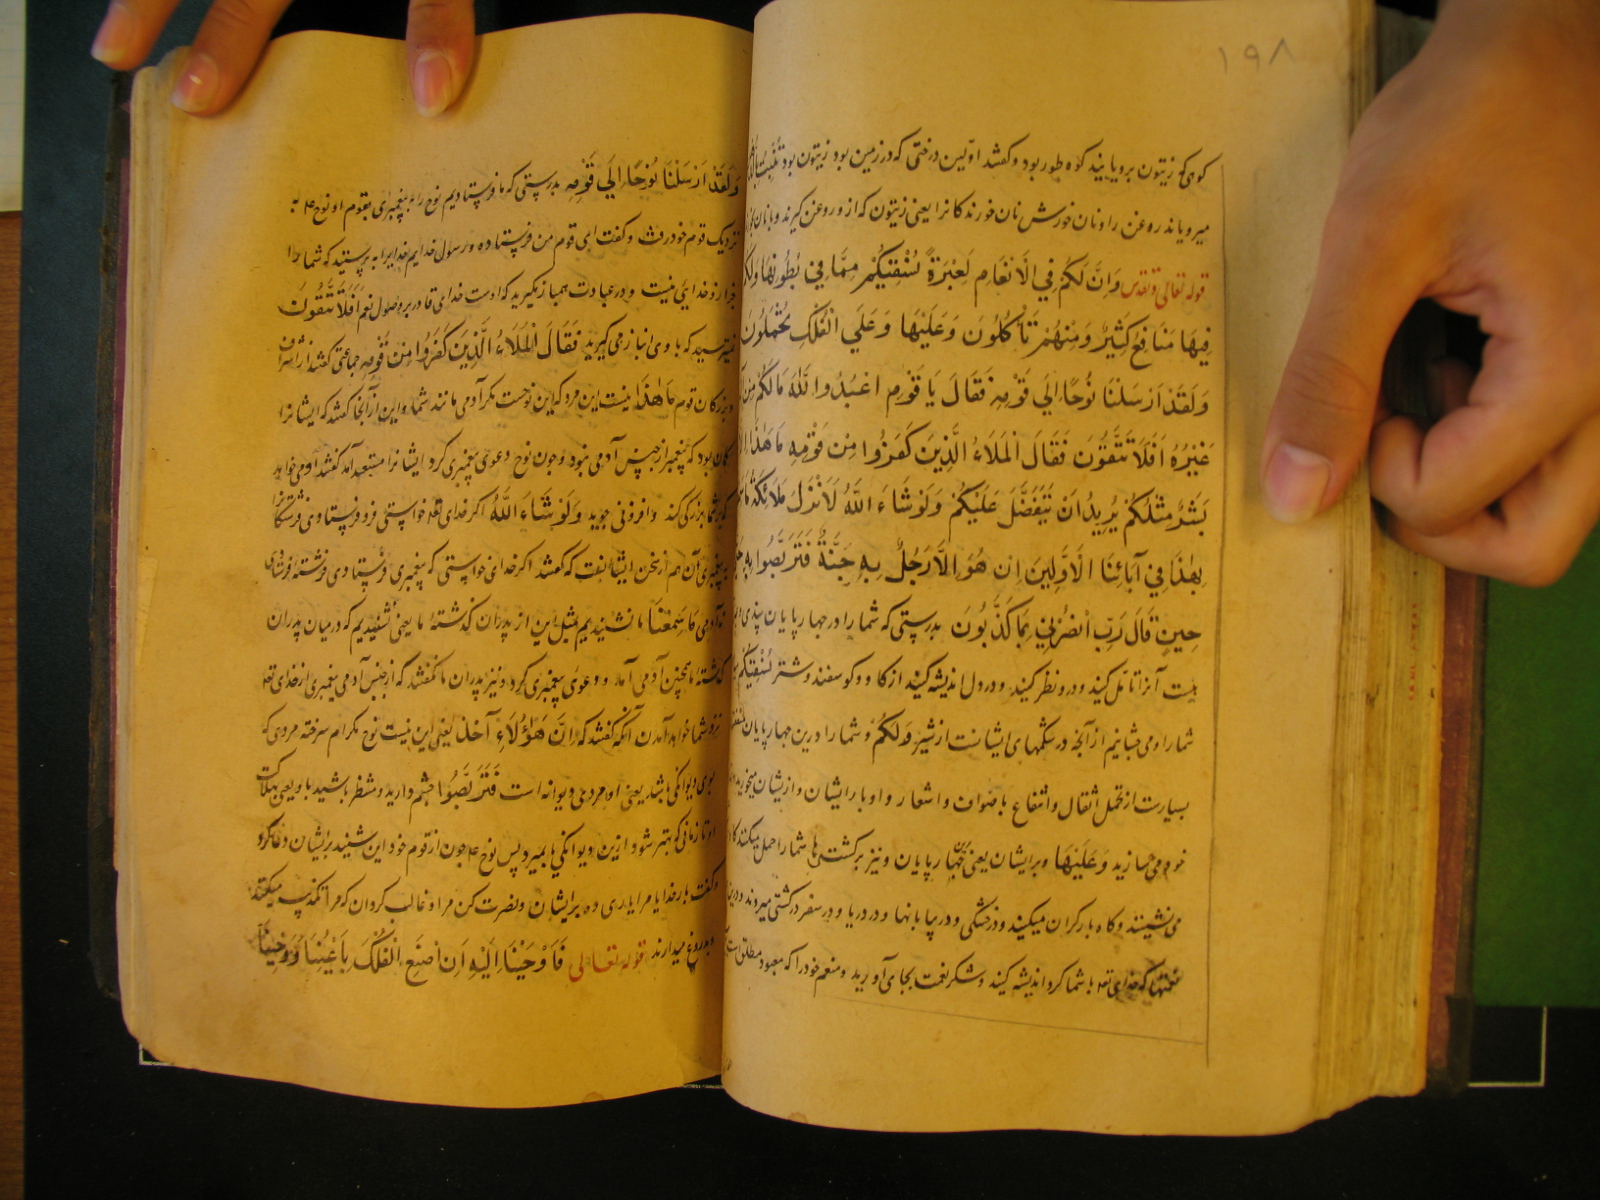 ۱۹۸
کوهی که زیتون برویانید کوه طور بود و گفتند اولین درختی که در زمین بود زیتون بود تَنْبُتُ
میرویاند روغن را و نان خورش نان خورندکانرا یعنی زیتون که ازو روغن گیرند و با نان
قوله تعالی و تقدس وَاِنَّ لَکُمْ فِي الْاَنْعَامِ لَعِبْرَةً نُسْقِیْکُمْ مِمَّا فِيْ بُطُونِهَا وَلَکُمْ
فِیْهَا مَنَافِعُ کَثِیْرٌ وَمِنْهُمْ تَاْکُلُونَ وَعَلَیْهَا وَعَلَي الْفُلْكِ تُحْمَلُونَ
وَلَقَدْ اَرْسَلْنَا نُوْحًا اِلَي قَوْمِهِ فَقَالَ یَا قَوْمِ اعْبُدُوا اللّٰهَ مَا لَکُمْ مِنْ
غَیْرُهُ اَفَلَا تَتَّقُونَ فَقَالَ الْمَلَاءُ الَّذِیْنَ کَفَرُوا مِنْ قَوْمِهِ مَا هٰذَا اِلَّا
بَشَرٌ مِثْلُکُمْ یُرِیْدُ اَنْ یَتَفَضَّلَ عَلَیْکُمْ وَلَوْ شَاءَ اللّٰهُ لَاَنْزَلَ مَلَائِکَةً مَا
بِهٰذَا فِي آبَائِنَا الْاَوَّلِیْنَ اِنْ هُوَ اِلَّا رَجُلٌ بِهِ جِنَّةٌ فَتَرَبَّصُوا بِهِ حَتَّی
حِیْنٍ قَالَ رَبِّ انْصُرْنِي بِمَا کَذَّبُونَ بدرستی که شما را در چهارپایان پندی
نیست آنرا تامل کنید و درو نظر کنید و در دل اندیشه کنید از کاو و کوسفند و شتر نُسْقِیْکُمْ
شما را می چشانیم از آنچه در شکمهای ایشانست از شیر وَلَکُمْ و شما را درین چهارپایان
بسیارست از تحمل اثقال و انتفاع باصواف و اشعار و اوبار ایشان و از یشان میخورید
خود می سازید وَعَلَیْهَا و برایشان یعنی چهارپایان و نیز بر کشتی ها شما را حمل میکنند
می نشینند و کاه بار کران میکنند و در خشکی و در بیابانها و در دریا و در سفر در کشتی میروند
نعمتها که خدای تعه با شما کرد اندیشه کنید و شکر نعمت بجای آورید و منعم خود را که معبود مطلق است
وَلَقَدْ اَرْسَلْنَا نُوْحًا اِلَي قَوْمِهِ بدرستی که ما فرستادیم نوح را به پیغمبری بقوم او نوح ع م به
نزدیک قوم خود رفت و گفت ای قوم من فرستاده و رسول خدایم خدایرا به پرستید که شما را
جز او خدائی نیست و در عبادت همباز مکیرید که اوست خدای قادر بر وصول نعم اَفَلَا تَتَّقُونَ
نمیترسید که با وی انباز می گیرید فَقَالَ الْمَلَاءُ الَّذِیْنَ کَفَرُوا مِنْ قَوْمِهِ جماعتی گفتند از اشراف
و بزرکان قوم مَا هٰذَا نیست این مرد که این نوحست مکر آدمی مانند شما و این از آنجا گفتند که ایشانرا
کمان بود که پیغمبر از جنس آدمی نبود و چون نوح دعوی پیغمبری کرد ایشانرا مستبعد آمد گفتند او می خواهد
که بر شما بزرکی کند و افزونی جوید وَلَوْ شَاءَ اللّٰهُ اکر خدای تعه خواستی فرو فرستادی فرشتگانرا
به پیغمبری آن هم از سخن ایشانست که گفتند اکر خدای خواستی که پیغمبری فرستادی فرشته فرستادی
نه آدمی مَا سَمِعْنَا ما نشنیدیم مثل این از پدران گذشته ما یعنی نشنیدیم که در میان پدران
گذشته ما همچنین آدمی آمد و دعوی پیغمبری کرد و نیز پدران ما نکفتند که از جنس آدمی پیغمبری از خدای تعه
نزد شما خواهد آمدن آنگه گفتند که اِنَّ هَؤُلَاءِ آخذ یعنی این نیست نوح مکر ام سرخته مردی که
بوی دیوانکی باشد یعنی او مردی دیوانه است فَتَرَبَّصُوا چشم دارید و منتظر باشید باو یعنی بهلاکت
او تا زمانی که بهتر شود ازین دیوانکی یا بمیرد پس نوح ع م چون از قوم خود این شنید برایشان دعا کرد
و گفت بار خدایا مرا یاری ده برایشان و نصرت کن مرا و غالب کردان که مرا تکذیب میکنند
و بدروغ میدارند قوله تعالی فَاَوْحَیْنَا اِلَیْهِ اَنِ اصْنَعِ الْفُلْكَ بِاَعْیُنِنَا وَوَحْیِنَا